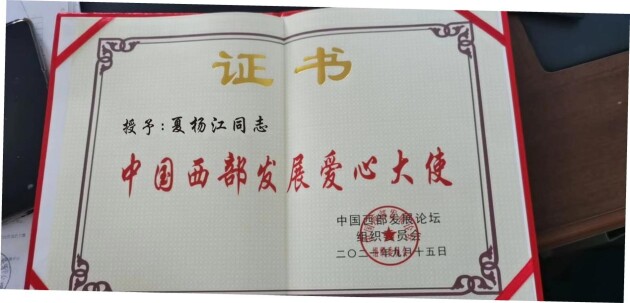 证书
授予：夏杨江同志
中国西部发展爱心大使
中国西部发展论坛
组织委员会
二〇二一年九月十五日